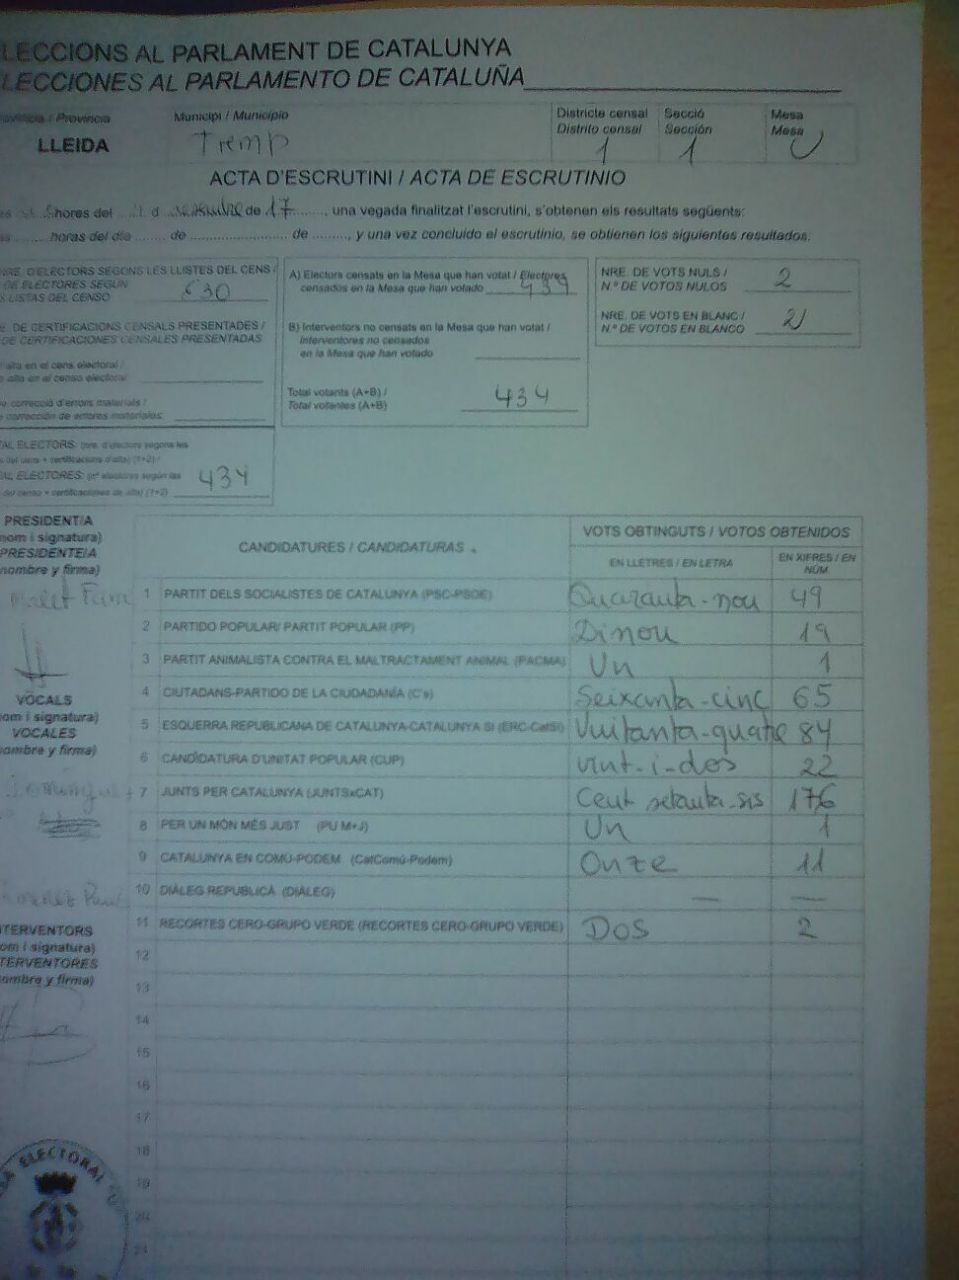 LECCIONS AL PARLAMENT DE CATALUNYA
LECCIONES AL PARLAMENTO DE CATALUÑA
/ Provincia Municipi / Municipio Districte censal Secció Mesa
Distrito censal Sección Mesa
LLEIDA Tremp 1 1 U
ACTA D'ESCRUTINI / ACTA DE ESCRUTINIO
hores del d de 17, una vegada finalitzat l'escrutini, s'obtenen els resultats següents:
horas del día de de, y una vez concluido el escrutinio, se obtienen los siguientes resultados:
NRE. D'ELECTORS SEGONS LES LLISTES DEL CENS /
DE ELECTORES SEGÚN
LISTAS DEL CENSO 630
DE CERTIFICACIONS CENSALS PRESENTADES /
DE CERTIFICACIONES CENSALES PRESENTADAS
alta en el cens electoral /
alta en el censo electoral
correcció d'errors materials /
corrección de errores materiales
AL ELECTORS: (nre. d'electors segons les
del cens + certificacions d'alta) (1+2) /
AL ELECTORES: (nº electores según las
del censo + certificaciones de alta) (1+2) 434
A) Electors censats en la Mesa que han votat / Electores
censados en la Mesa que han votado 434
B) Interventors no censats en la Mesa que han votat /
Interventores no censados
en la Mesa que han votado
Total votants (A+B) /
Total votantes (A+B) 434
NRE. DE VOTS NULS /
N.º DE VOTOS NULOS 2
NRE. DE VOTS EN BLANC /
N.º DE VOTOS EN BLANCO 2
PRESIDENT/A
nom i signatura)
PRESIDENTE/A
nombre y firma)
Malet
VOCALS
om i signatura)
VOCALES
ombre y firma)
NTERVENTORS
om i signatura)
TERVENTORES
ombre y firma)
CANDIDATURES / CANDIDATURAS VOTS OBTINGUTS / VOTOS OBTENIDOS
EN LLETRES / EN LETRA EN XIFRES / EN NÚM.
1 PARTIT DELS SOCIALISTES DE CATALUNYA (PSC-PSOE) Quaranta-nou 49
2 PARTIDO POPULAR/ PARTIT POPULAR (PP) Dinou 19
3 PARTIT ANIMALISTA CONTRA EL MALTRACTAMENT ANIMAL (PACMA) Un 1
4 CIUTADANS-PARTIDO DE LA CIUDADANÍA (C's) Seixanta-cinc 65
5 ESQUERRA REPUBLICANA DE CATALUNYA-CATALUNYA SÍ (ERC-CatSí) Vuitanta-quatre 84
6 CANDIDATURA D'UNITAT POPULAR (CUP) vint-i-dos 22
7 JUNTS PER CATALUNYA (JUNTSxCAT) Cent setanta-sis 176
8 PER UN MÓN MÉS JUST (PUM+J) Un 1
9 CATALUNYA EN COMÚ-PODEM (CatComú-Podem) Onze 11
10 DIÀLEG REPUBLICÀ (DIÀLEG) — —
11 RECORTES CERO-GRUPO VERDE (RECORTES CERO-GRUPO VERDE) Dos 2
12
13
14
15
16
17
18
19
20
21
ELECTORAL